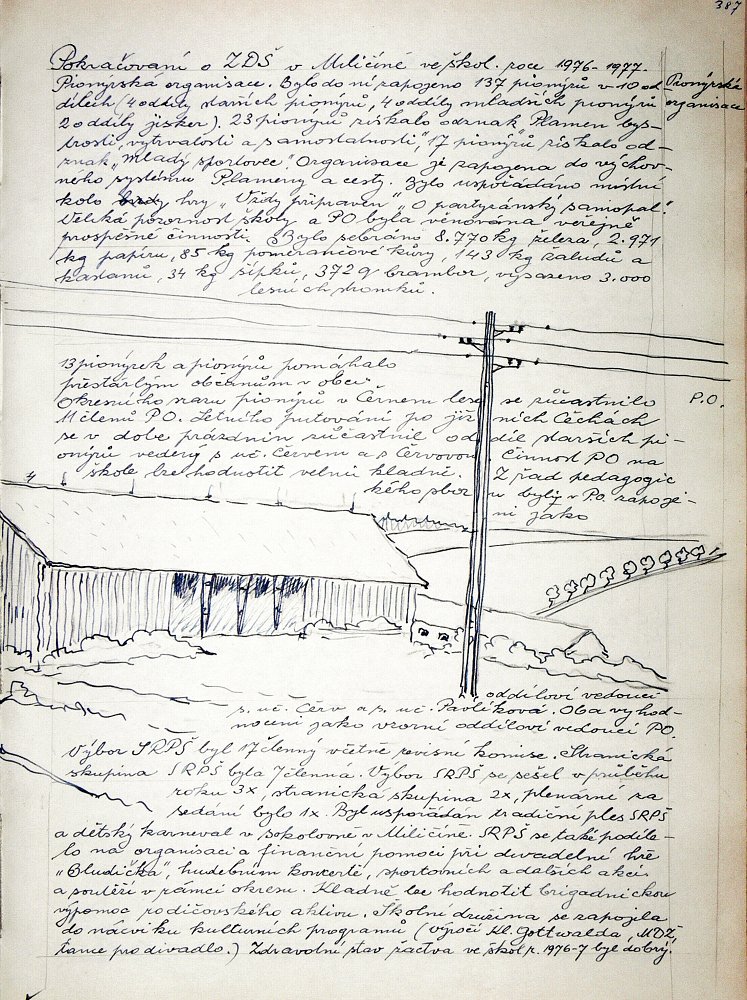 387
Pokračování o ZDŠ v Miličíně ve škol. roce 1976-1977.
Pionýrská organisace. Bylo do ní zapojeno 137 pionýrů v 10 od-
Pionýrská
organisace
dílech (4 oddíly starších pionýrů, 4 oddíly mladších pionýrů
2 oddíly jisker). 23 pionýrů získalo odznak "Plamen bys-
trosti, vytrvalosti a samostatnosti," 17 pionýrů získalo od-
znak "Mladý sportovec". Organisace je zapojena do výchov-
ného systému Plameny a cesty. Bylo uspořádáno místní
kolo hry "Vždy připraven" "O partyzánský samopal".
Veliká pozornost školy a PO byla věnována veřejně
prospěšné činnosti. Bylo sebráno 8.770 kg železa, 2.971
kg papíru, 85 kg pomerančové kůry, 143 kg žaludů a
kaštanů, 34 kg šípků, 372 q brambor, vysazeno 3.000
lesních stromků.
13 pionýrek a pionýrů pomáhalo
přestárlým občanům v obci.
Okresního srazu pionýrů v Černém lese se zúčastnilo
P.O.
11 členů PO. Letního putování po jižních Čechách
se v době prázdnin zúčastnil oddíl starších pi-
onýrů vedený s. uč. Červem a s. Červovou. Činnost PO na
škole lze hodnotit velmi kladně. Z řad pedagogic
kého sboru byli v P.O. zapoje-
ni jako
oddíloví vedoucí
s. uč. Červ a s. uč. Pavlíková. Oba vyhod-
noceni jako vzorní oddíloví vedoucí PO.
Výbor SRPŠ byl 17členný včetně revisní komise. Stranická
skupina SRPŠ byla 7členná. Výbor SRPŠ se sešel v průběhu
roku 3x, stranická skupina 2x, plenární za
sedání bylo 1x. Byl uspořádán tradiční ples SRPŠ
a dětský karneval v sokolovně v Miličíně. SRPŠ se také podíle-
lo na organisaci a finanční pomoci při divadelní hře
"Bludička", hudebním koncertě, sportovních a dalších akcí
a soutěží v rámci okresu. Kladně lze hodnotit brigádnickou
výpomoc rodičovského aktivu. Školní družina se zapojila
do nácviku kulturních programů (výročí Kl. Gottwalda, MDŽ,
tance pro divadlo.) Zdravotní stav žactva ve škol r. 1976-7 byl dobrý.